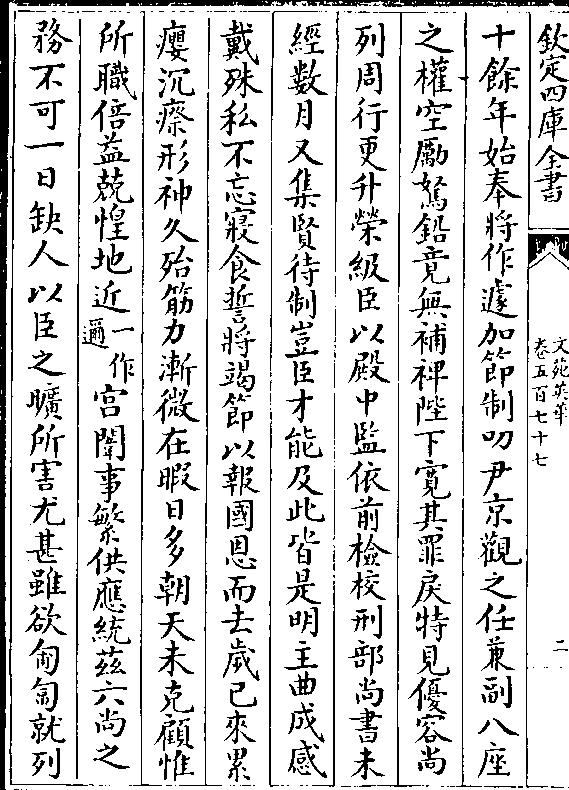 欽定四庫全書
文苑英華
卷五百七十七
二
十餘年始奉將作遽加節制叨尹京觀之任兼副八座
之權空勵駑鉛竟無補裨陛下寛其罪戾特見優容尚
列周行更升榮級臣以殿中監依前檢校刑部尚書未
經數月又集賢待制豈臣才能及此皆是明主曲成感
戴殊私不忘寢食誓將竭節以報國恩而去歳已來累
癭沉瘵形神久殆筋力漸微在暇日多朝天未克顧惟
所職倍益兢惶地近一作邇宫闈事繁供應統兹六尚之
務不可一日缺人以臣之曠所害尤甚雖欲匍匐就列